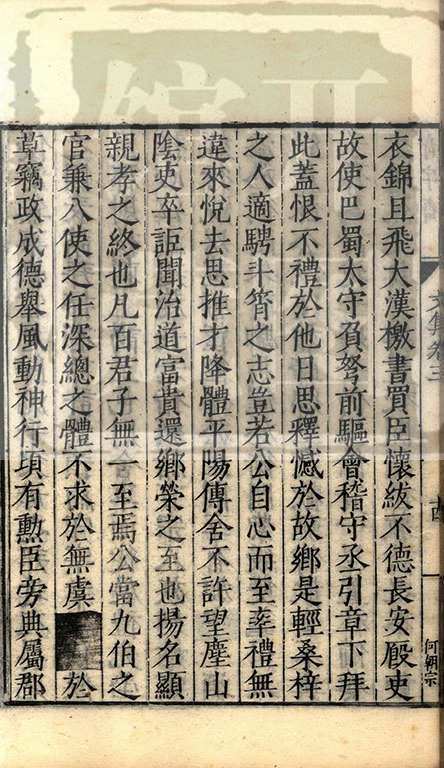 衣錦且飛大漢檄書買臣懷紱不德長安廄吏
故使巴蜀太守負弩前驅會稽守丞引章下拜
此蓋恨不禮於他日思釋憾於故鄉是輕桑梓
之人適騁斗筲之志豈若公自心而至率禮無
違來悅去思推才降體平陽傳舍不許望塵山
陰吏卒詎聞治道富貴還鄉榮之至也揚名顯
親孝之終也凡百君子無一至焉公當九伯之
官兼八使之任深總之體不求於無虞 於
草竊政成德舉風動神行頃有勳臣旁典屬郡
文集卷三
何朝宗